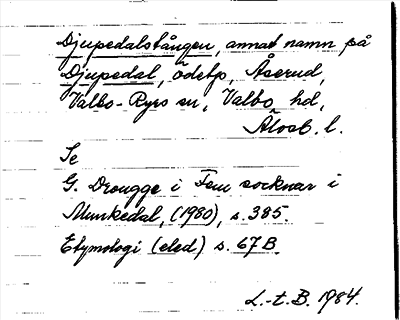 Djupedalstången, annat namn på
Djupedal, ödetp, Åserud,
Valbo-Ryrs sn, Valbo hd,
Älvsb. l.
Se
G. Drougge i Fem socknar i
Munkedal, (1980), s. 385.
Etymologi (eled) s. 67 B.
L.-t. B. 1984.